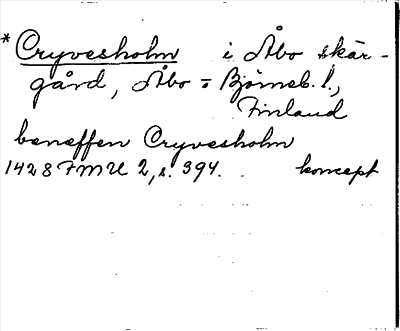 * Cryvesholm i Åbo skär-
gård, Åbo = Björneb. l.,
Finland
beneffen Cryvesholm
1428 FMU 2, s. 394. koncept